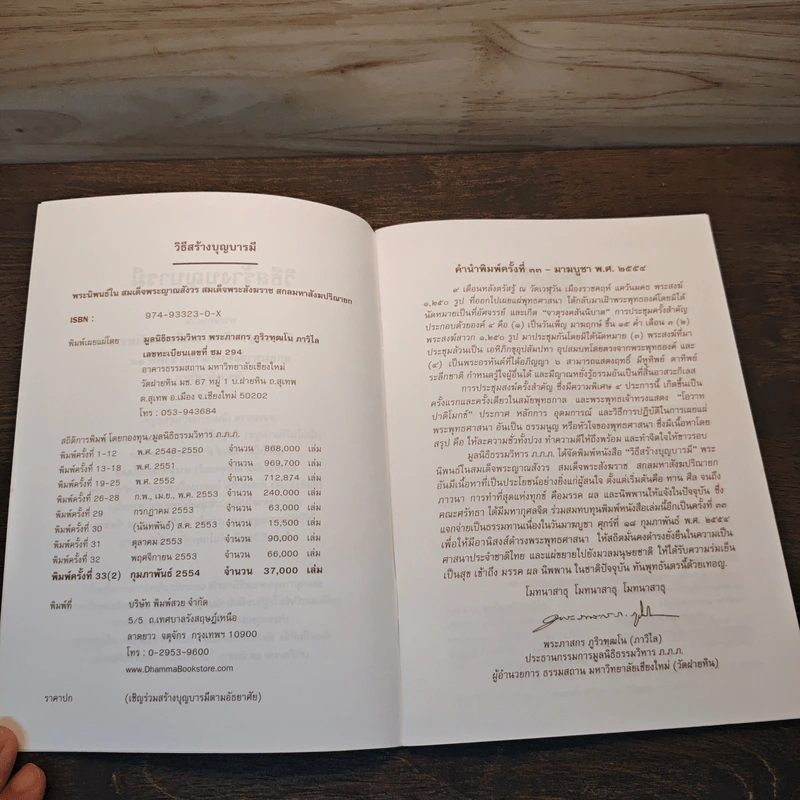 วิธีสร้างบุญบารมี
พระนิพนธ์ใน สมเด็จพระญาณสังวร สมเด็จพระสังฆราช สกลมหาสังฆปริณายก
ISBN : 974-93323-0-X
พิมพ์เผยแผ่โดย มูลนิธิธรรมวิหาร พระภาสกร ภูริวฑฺฒโน ภาวิไล
เลขทะเบียนเลขที่ ชม 294
อาคารธรรมสถาน มหาวิทยาลัยเชียงใหม่
วัดฝายหิน มช. 67 หมู่ 1 บ.ฝายหิน ต.สุเทพ
ต.สุเทพ อ.เมือง จ.เชียงใหม่ 50202
โทร : 053-943684
สถิติการพิมพ์ โดยกองทุน/มูลนิธิธรรมวิหาร ภ.ภ.ภ.
พิมพ์ครั้งที่ 1-12 พ.ศ. 2548-2550 จำนวน 868,000 เล่ม
พิมพ์ครั้งที่ 13-18 พ.ศ. 2551 จำนวน 969,700 เล่ม
พิมพ์ครั้งที่ 19-25 พ.ศ. 2552 จำนวน 712,874 เล่ม
พิมพ์ครั้งที่ 26-28 ก.พ., เม.ย., พ.ค. 2553 จำนวน 240,000 เล่ม
พิมพ์ครั้งที่ 29 กรกฎาคม 2553 จำนวน 63,000 เล่ม
พิมพ์ครั้งที่ 30 (นันทพันธ์) ส.ค. 2553 จำนวน 15,500 เล่ม
พิมพ์ครั้งที่ 31 ตุลาคม 2553 จำนวน 90,000 เล่ม
พิมพ์ครั้งที่ 32 พฤศจิกายน 2553 จำนวน 66,000 เล่ม
พิมพ์ครั้งที่ 33(2) กุมภาพันธ์ 2554 จำนวน 37,000 เล่ม
พิมพ์ที่ บริษัท พิมพ์สวย จำกัด
5/5 ถ.เทศบาลรังสฤษฎ์เหนือ
ลาดยาว จตุจักร กรุงเทพฯ 10900
โทร : 0-2953-9600
www.DhammaBookstore.com
ราคาปก (เชิญร่วมสร้างบุญบารมีตามอัธยาศัย)
คำนำพิมพ์ครั้งที่ ๓๓ - มาฆบูชา พ.ศ. ๒๕๕๔
๙ เดือนหลังตรัสรู้ ณ วัดเวฬุวัน เมืองราชคฤห์ แคว้นมคธ พระสงฆ์
๑,๒๕๐ รูป ที่ออกไปเผยแผ่พุทธศาสนา ได้กลับมาเฝ้าพระพุทธองค์โดยมิได้
นัดหมายเป็นที่อัศจรรย์ และเกิด "จาตุรงคสันนิบาต" การประชุมครั้งสำคัญ
ประกอบด้วยองค์ ๔ คือ (๑) เป็นวันเพ็ญ มาฆฤกษ์ ขึ้น ๑๕ ค่ำ เดือน ๓ (๒)
พระสงฆ์สาวก ๑,๒๕๐ รูป มาประชุมกันโดยมิได้นัดหมาย (๓) พระสงฆ์ที่มา
ประชุมล้วนเป็น เอหิภิกขุอุปสัมปทา อุปสมบทโดยตรงจากพระพุทธองค์ และ
(๔) เป็นพระอรหันต์ที่ได้อภิญญา ๖ สามารถแสดงฤทธิ์ มีหูทิพย์ ตาทิพย์
ระลึกชาติ กำหนดรู้ใจผู้อื่นได้ และมีญาณหยั่งรู้ธรรมอันเป็นที่สิ้นอาสวะกิเลส
การประชุมสงฆ์ครั้งสำคัญ ซึ่งมีความพิเศษ ๔ ประการนี้ เกิดขึ้นเป็น
ครั้งแรกและครั้งเดียวในสมัยพุทธกาล และพระพุทธเจ้าทรงแสดง "โอวาท
ปาติโมกข์" ประกาศ หลักการ อุดมการณ์ และวิธีการปฏิบัติในการเผยแผ่
พระพุทธศาสนา อันเป็น ธรรมนูญ หรือหัวใจของพุทธศาสนา ซึ่งมีเนื้อหาโดย
สรุป คือ ให้ละความชั่วทั้งปวง ทำความดีให้ถึงพร้อม และทำจิตใจให้ขาวรอบ
มูลนิธิธรรมวิหาร ภ.ภ.ภ. ได้จัดพิมพ์หนังสือ "วิธีสร้างบุญบารมี" พระ
นิพนธ์ในสมเด็จพระญาณสังวร สมเด็จพระสังฆราช สกลมหาสังฆปริณายก
อันมีเนื้อหาที่เป็นประโยชน์อย่างยิ่งแก่ผู้สนใจ ตั้งแต่เริ่มต้นคือ ทาน ศีล จนถึง
ภาวนา การทำที่สุดแห่งทุกข์ คือมรรค ผล และนิพพานให้แจ้งในปัจจุบัน ซึ่ง
คณะศรัทธา ได้มีมหากุศลจิต ร่วมสมทบทุนพิมพ์หนังสือเล่มนี้อีกเป็นครั้งที่ ๓๓
แจกจ่ายเป็นธรรมทานเนื่องในวันมาฆบูชา ศุกร์ที่ ๑๘ กุมภาพันธ์ พ.ศ. ๒๕๕๔
เพื่อให้มีอานิสงส์ดำรงพระพุทธศาสนา ให้สถิตมั่นคงดำรงยั่งยืนในความเป็น
ศาสนาประจำชาติไทย และแผ่ขยายไปยังมวลมนุษยชาติ ให้ได้รับความร่มเย็น
เป็นสุข เข้าถึง มรรค ผล นิพพาน ในชาติปัจจุบัน ทันพุทธันดรนี้ด้วยเทอญ.
โมทนาสาธุ โมทนาสาธุ โมทนาสาธุ
พระภาสกร ภูริวฑฺฒโน (ภาวิไล)
ประธานกรรมการมูลนิธิธรรมวิหาร ภ.ภ.ภ.
ผู้อำนวยการ ธรรมสถาน มหาวิทยาลัยเชียงใหม่ (วัดฝายหิน)